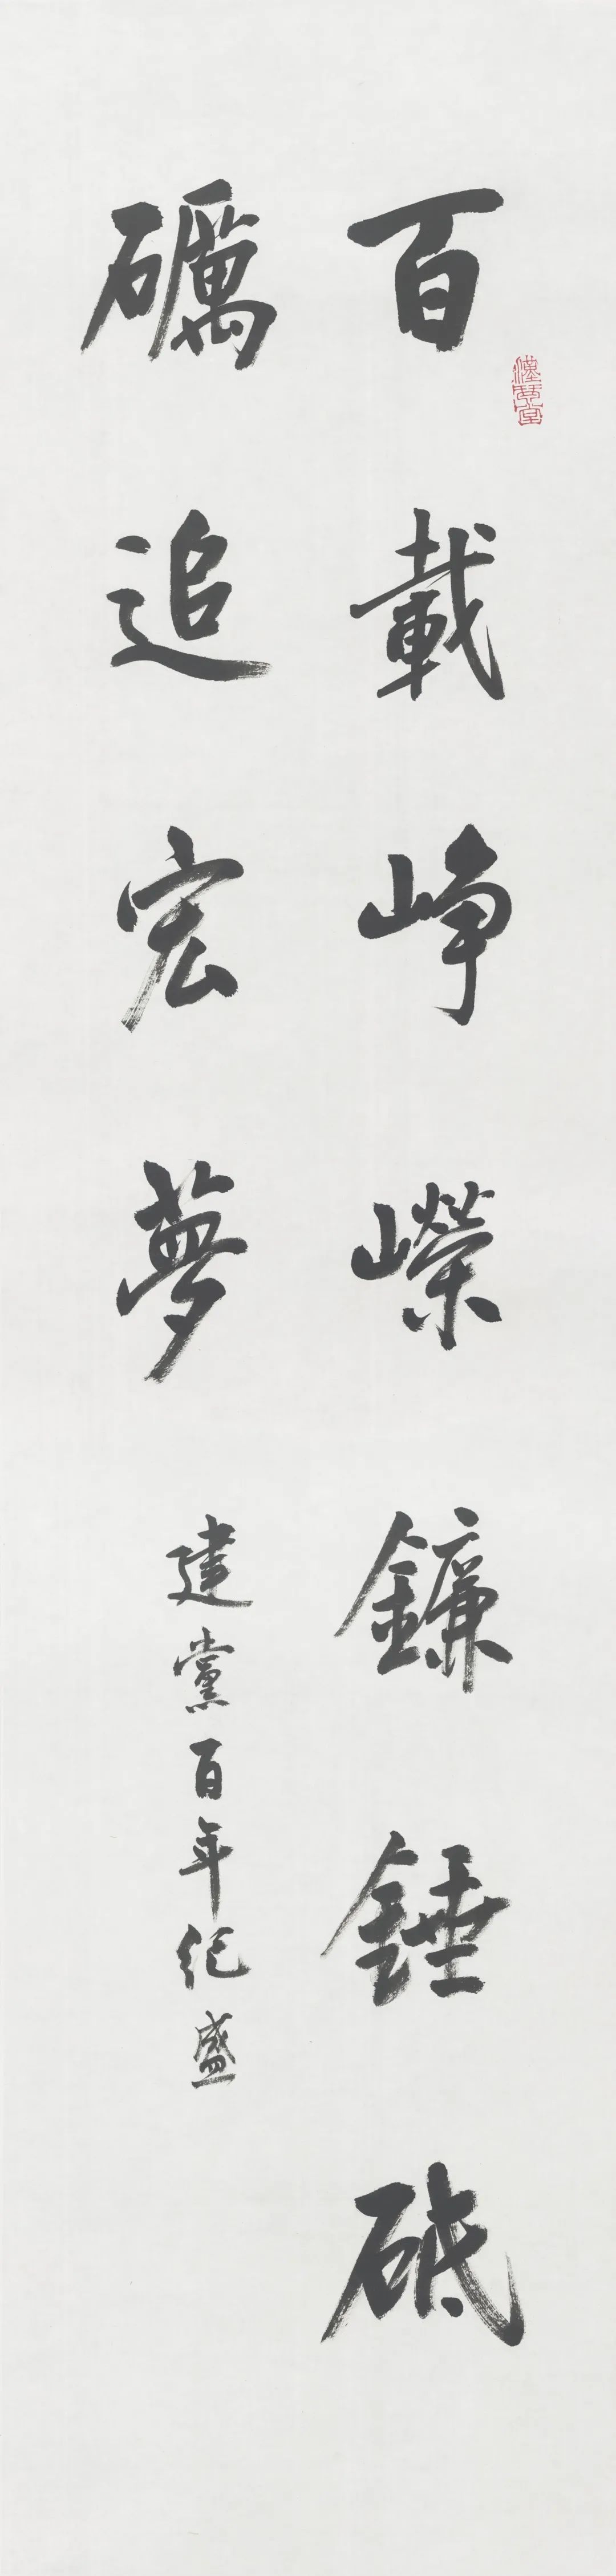 百載崢嶸鐮錘砥
礪追宏夢
建黨百年纪盛